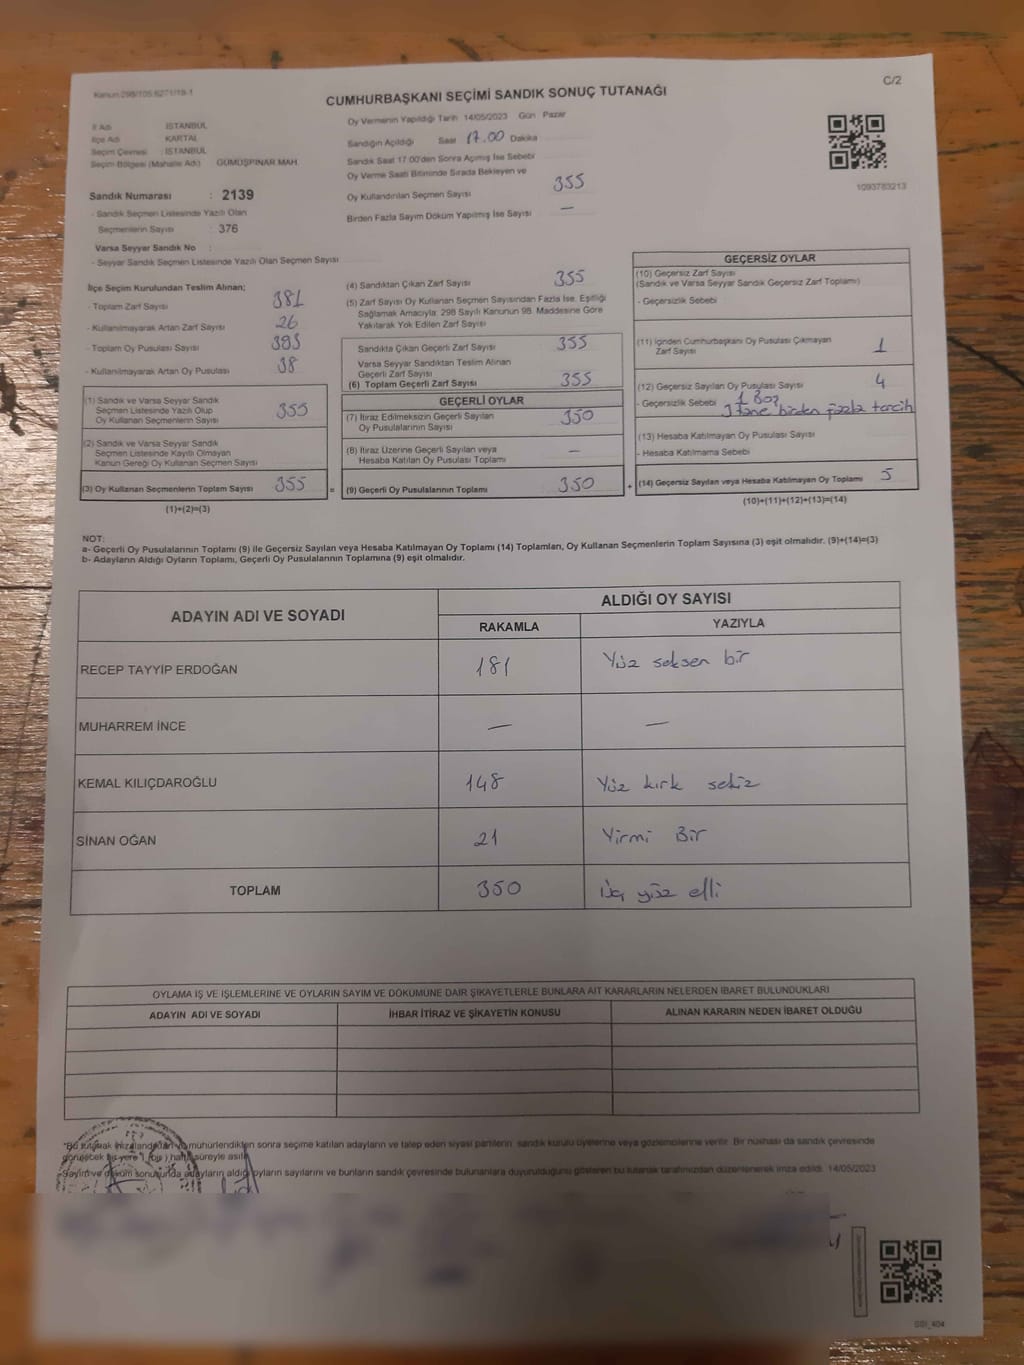 Kanun:298/105.6271/19-1
C/2
CUMHURBAŞKANI SEÇİMİ SANDIK SONUÇ TUTANAĞI
İl Adı İSTANBUL
İlçe Adı KARTAL
Seçim Çevresi İSTANBUL
Seçim Bölgesi (Mahalle Adı) GÜMÜŞPINAR MAH.
Sandık Numarası : 2139
- Sandık Seçmen Listesinde Yazılı Olan
Seçmenlerin Sayısı : 376
Varsa Seyyar Sandık No :
- Seyyar Sandık Seçmen Listesinde Yazılı Olan Seçmen Sayısı
Oy Vermenin Yapıldığı Tarih 14/05/2023 Gün Pazar
Sandığın Açıldığı Saat 17.00 Dakika
Sandık Saat 17.00'den Sonra Açılmış İse Sebebi
Oy Verme Saati Bitiminde Sırada Bekleyen ve
Oy Kullandırılan Seçmen Sayısı 355
Birden Fazla Sayım Döküm Yapılmış İse Sayısı —
1093783213
İlçe Seçim Kurulundan Teslim Alınan;
- Toplam Zarf Sayısı 381
- Kullanılmayarak Artan Zarf Sayısı 26
- Toplam Oy Pusulası Sayısı 393
- Kullanılmayarak Artan Oy Pusulası 38
(1) Sandık ve Varsa Seyyar Sandık
Seçmen Listesinde Yazılı Olup
Oy Kullanan Seçmenlerin Sayısı 355
(2) Sandık ve Varsa Seyyar Sandık
Seçmen Listesinde Kayıtlı Olmayan
Kanun Gereği Oy Kullanan Seçmen Sayısı
(3) Oy Kullanan Seçmenlerin Toplam Sayısı 355 =
(1)+(2)=(3)
(4) Sandıktan Çıkan Zarf Sayısı 355
(5) Zarf Sayısı Oy Kullanan Seçmen Sayısından Fazla İse, Eşitliği
Sağlamak Amacıyla; 298 Sayılı Kanunun 98. Maddesine Göre
Yakılarak Yok Edilen Zarf Sayısı
Sandıkta Çıkan Geçerli Zarf Sayısı 355
Varsa Seyyar Sandıktan Teslim Alınan
Geçerli Zarf Sayısı
(6) Toplam Geçerli Zarf Sayısı 355
GEÇERLİ OYLAR
(7) İtiraz Edilmeksizin Geçerli Sayılan
Oy Pusulalarının Sayısı 350
(8) İtiraz Üzerine Geçerli Sayılan veya
Hesaba Katılan Oy Pusulası Toplamı —
(9) Geçerli Oy Pusulalarının Toplamı 350 +
GEÇERSİZ OYLAR
(10) Geçersiz Zarf Sayısı
(Sandık ve Varsa Seyyar Sandık Geçersiz Zarf Toplamı)
- Geçersizlik Sebebi
(11) İçinden Cumhurbaşkanı Oy Pusulası Çıkmayan
Zarf Sayısı 1
(12) Geçersiz Sayılan Oy Pusulası Sayısı 4
- Geçersizlik Sebebi 1 Boş
3 tane birden fazla tercih
(13) Hesaba Katılmayan Oy Pusulası Sayısı
- Hesaba Katılmama Sebebi
(14) Geçersiz Sayılan veya Hesaba Katılmayan Oy Toplamı 5
(10)+(11)+(12)+(13)=(14)
NOT:
a- Geçerli Oy Pusulalarının Toplamı (9) ile Geçersiz Sayılan veya Hesaba Katılmayan Oy Toplamı (14) Toplamları, Oy Kullanan Seçmenlerin Toplam Sayısına (3) eşit olmalıdır. (9)+(14)=(3)
b- Adayların Aldığı Oyların Toplamı, Geçerli Oy Pusulalarının Toplamına (9) eşit olmalıdır.
ADAYIN ADI VE SOYADI
ALDIĞI OY SAYISI
RAKAMLA YAZIYLA
RECEP TAYYİP ERDOĞAN 181 Yüz seksen bir
MUHARREM İNCE — —
KEMAL KILIÇDAROĞLU 148 Yüz kırk sekiz
SİNAN OĞAN 21 Yirmi Bir
TOPLAM 350 Üç yüz elli
OYLAMA İŞ VE İŞLEMLERİNE VE OYLARIN SAYIM VE DÖKÜMÜNE DAİR ŞİKAYETLERLE BUNLARA AİT KARARLARIN NELERDEN İBARET BULUNDUKLARI
ADAYIN ADI VE SOYADI İHBAR İTİRAZ VE ŞİKAYETİN KONUSU ALINAN KARARIN NEDEN İBARET OLDUĞU
*Bu tutanak imzalandıktan ve mühürlendikten sonra seçime katılan adayların ve talep eden siyasi partilerin sandık kurulu üyelerine veya gözlemcilerine verilir. Bir nüshası da sandık çevresinde
görülecek bir yere 1 (bir) hafta süreyle asılır.
*Sayım ve döküm sonucunda adayların aldığı oyların sayılarını ve bunların sandık çevresinde bulunanlara duyurulduğunu gösteren bu tutanak tarafımızdan düzenlenerek imza edildi. 14/05/2023